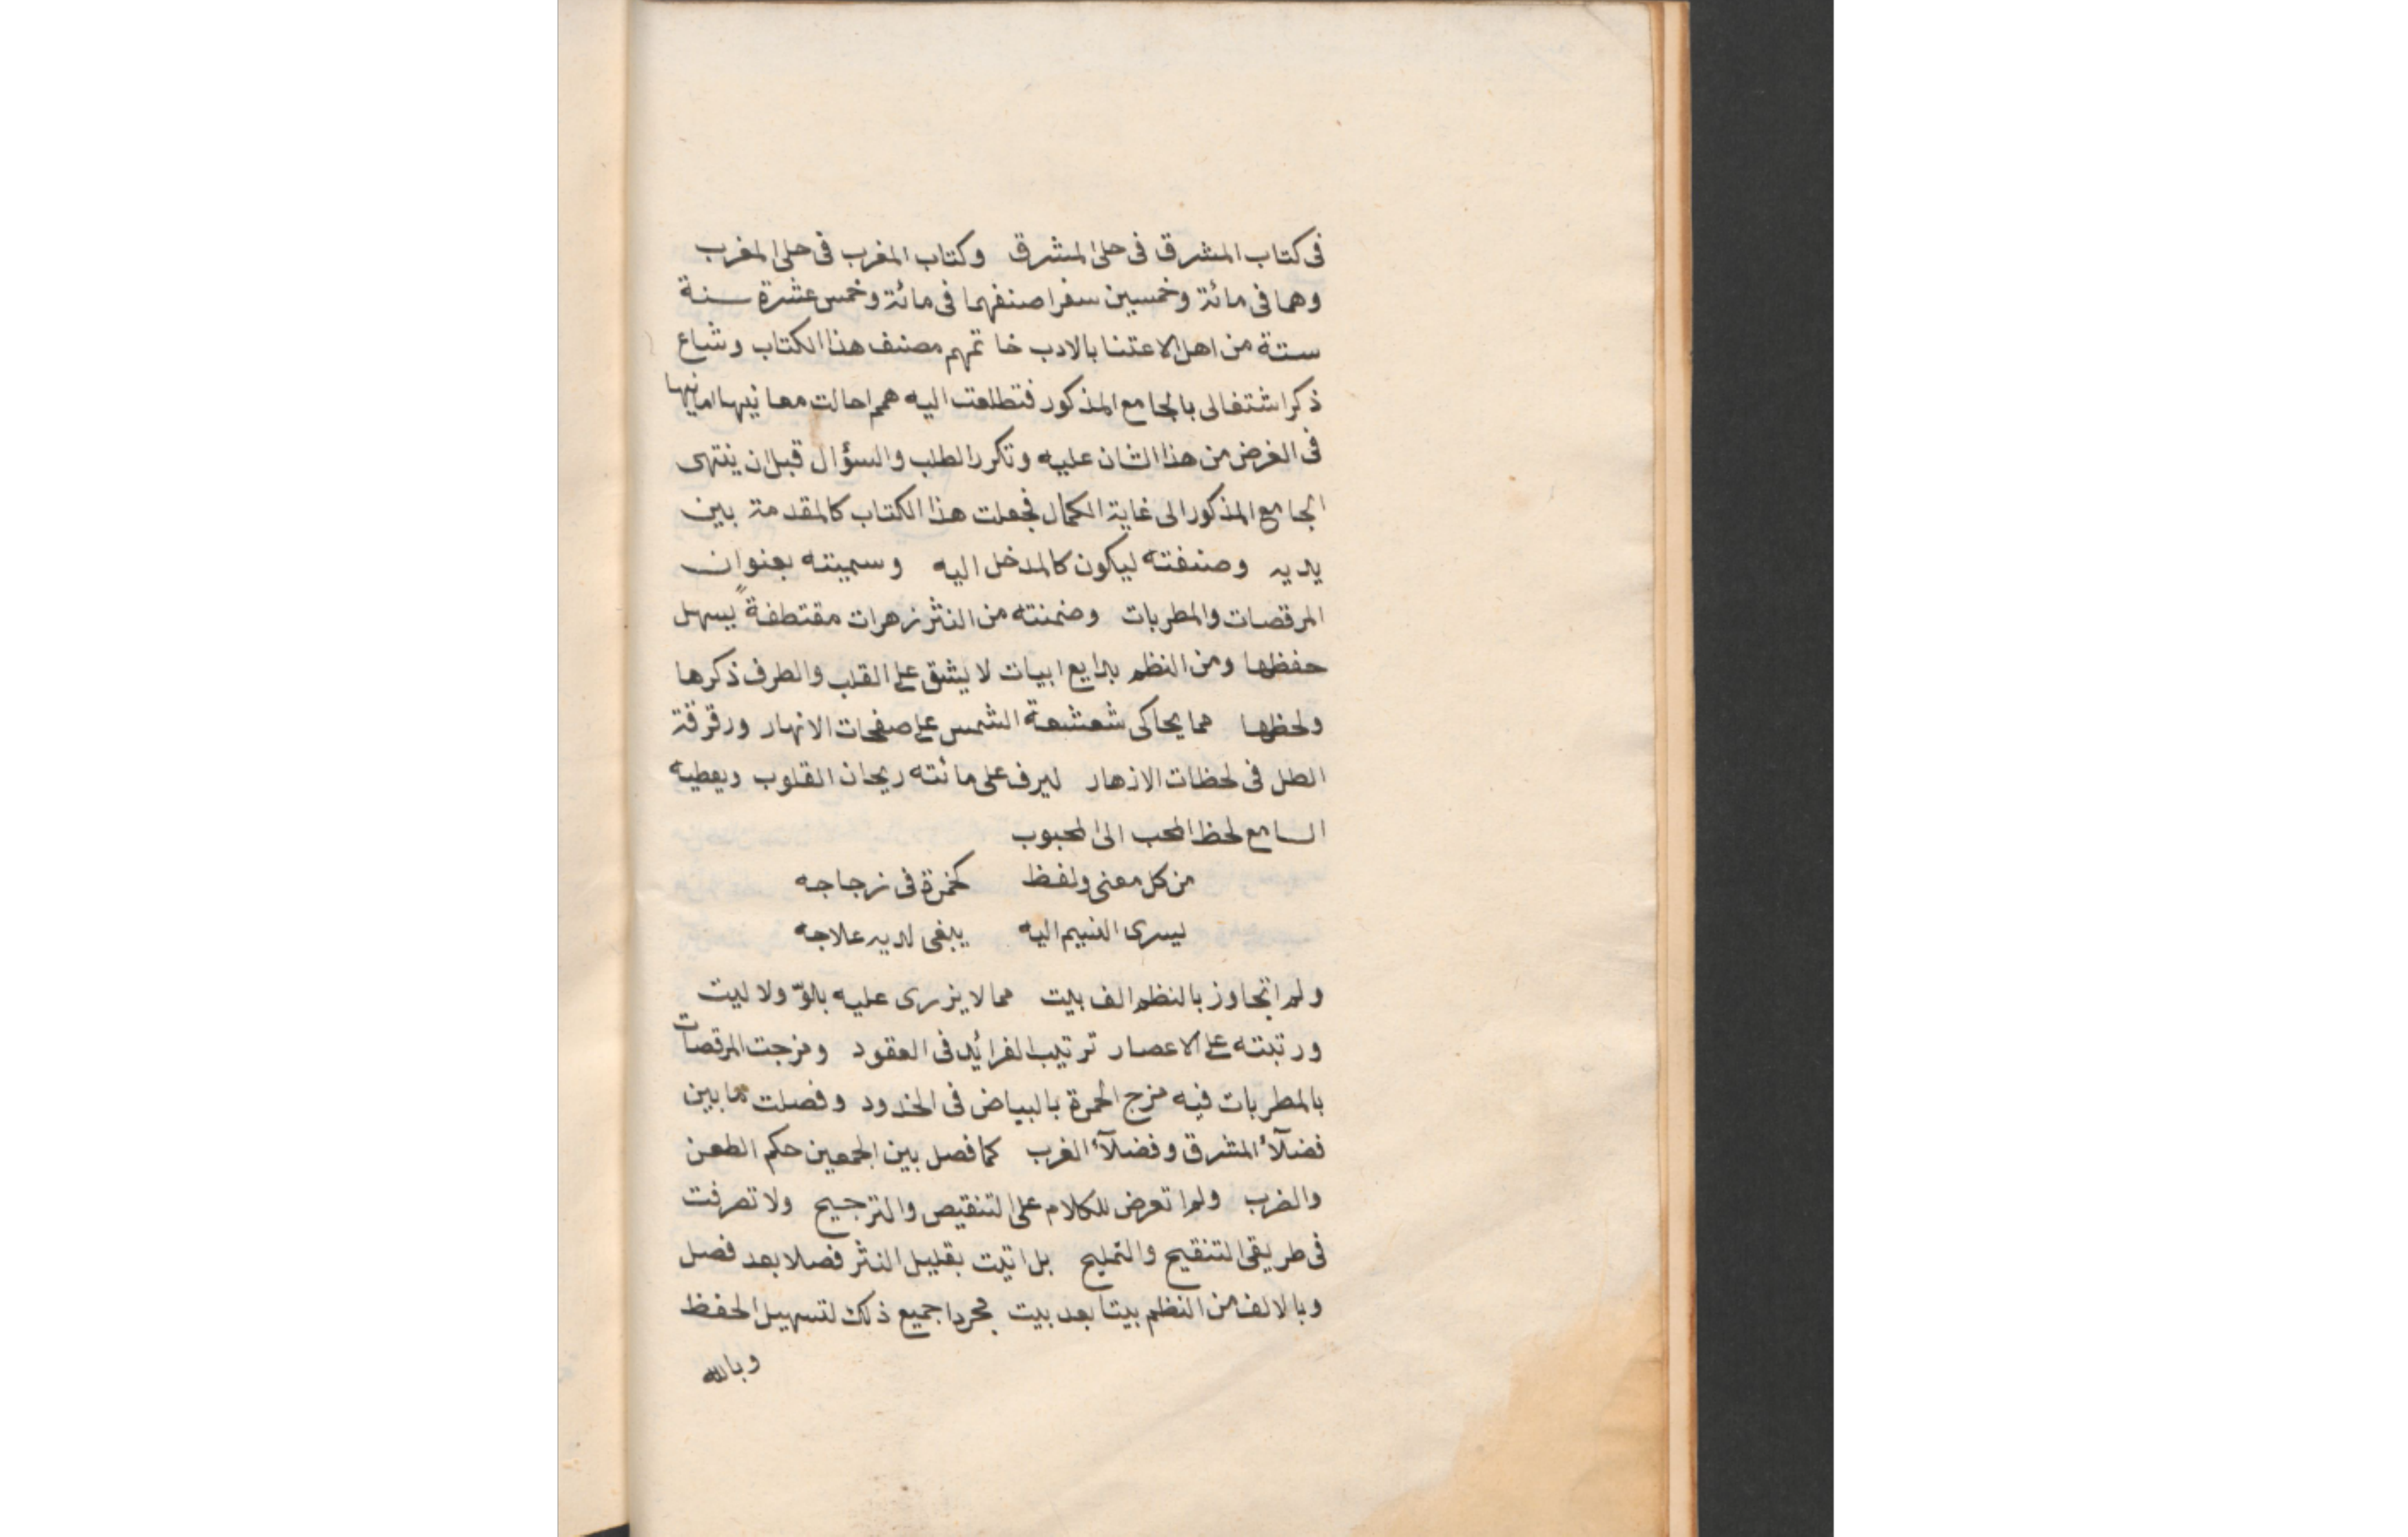 فى كتاب المشرق فى حلى المشرق وكتاب المغرب فى حلى المغرب
وهما فى مائة وخمسين سفرا صنفهما فى مائة وخمس عشرة سنة
ستة من اهل الاعتنا بالادب خاتمهم مصنف هذا الكتاب وشاع
ذكر اشتغالى بالجامع المذكور فتطلعت اليه همم احالت معانيها امانيها
فى الغرض من هذا الشان عليه وتكرر الطلب والسؤال قبل ان ينتهى
الجامع المذكور الى غاية الكمال فجعلت هذا الكتاب كالمقدمة بين
يديه وصنفته ليكون كالمدخل اليه وسميته بعنوان
المرقصات والمطربات وضمنته من النثر زهرات مقتطفة يسهل
حفظها ومن النظم بدايع ابيات لا يشق على القلب والطرف ذكرها
ولحظها مما يحاكى شعشعة الشمس على صفحات الانهار ورقرقة
الطل فى لحظات الازهار ليرف على مائته ريحان القلوب ويعطيه
السامع لحظ المحب الى المحبوب
من كل معنى ولفظ كخمرة فى زجاجه
يسرى النسيم اليه يبغى لديه علاجه
ولم اتجاوز بالنظم الف بيت مما لا يزرى عليه بلوّ ولا ليت
ورتبته على الاعصار ترتيب الفرائد فى العقود ومزجت المرقصات
بالمطربات فيه مزج الحمرة بالبياض فى الخدود وفصلت ما بين
فضلآء المشرق وفضلآء الغرب كما فصل بين الجمعين حكم الطعن
والضرب ولم اتعرض للكلام على التنقيص والترجيح ولا تصرفت
فى طريقى التنقيح والتمليح بل اتيت بقليل النثر فصلا بعد فصل
وبالالف من النظم بيتا بعد بيت مجردا جميع ذلك لتسهيل الحفظ
وبالله